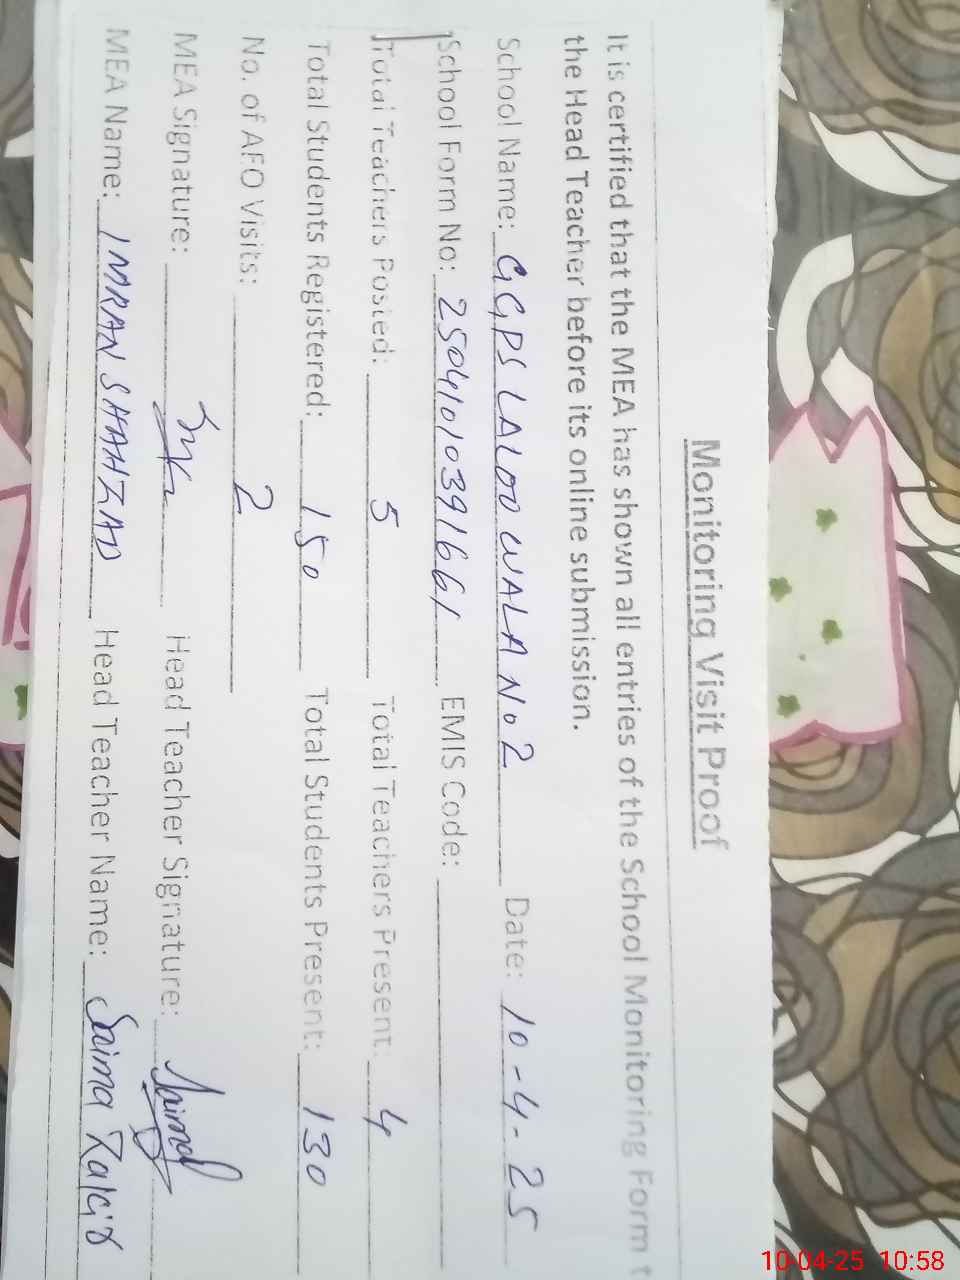 Monitoring Visit Proof
It is certified that the MEA has shown all entries of the School Monitoring Form t
the Head Teacher before its online submission.
School Name: GGPS LALOO WALA No 2 Date: 10-4-25
School Form No: 250410103916661 EMIS Code:
Total Teachers Posted: 5 Total Teachers Present: 4
Total Students Registered: 150 Total Students Present: 130
No. of AEO Visits: 2
MEA Signature: Head Teacher Signature: Saima
MEA Name: IMRAN SHAHZAD Head Teacher Name: Saima
10-04-25 10:58